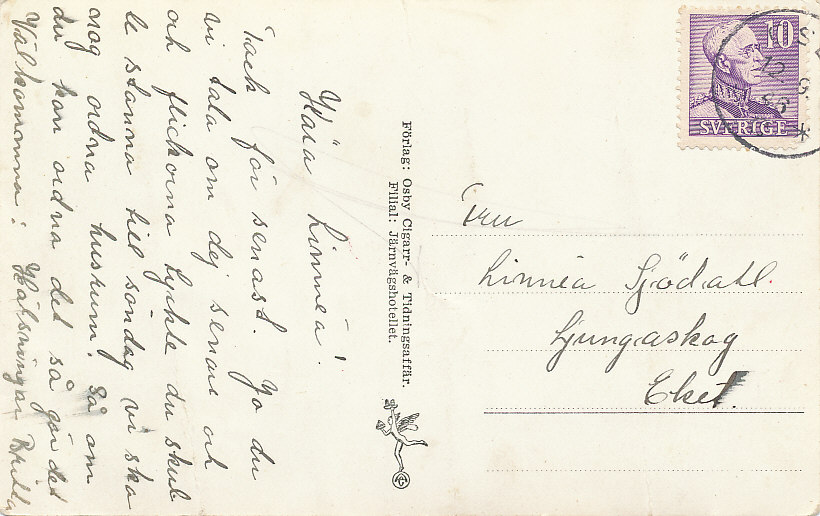 Kära Linnéa!
Tack för senast. Jo du
vi tala om dej senare och
och flickorna tyckte du skul
le stanna till söndag vi ska
nog ordna husrum. Så om
du kan ordna det så gör det
Välkomna! Hälsningar Britta
Förlag: Osby Cigarr- & Tidningsaffär.
Filial: Järnvägshotellet.
10
SVERIGE
12.9.
Fru
Linnéa Sjödahl.
Ljungaskog
Eket.